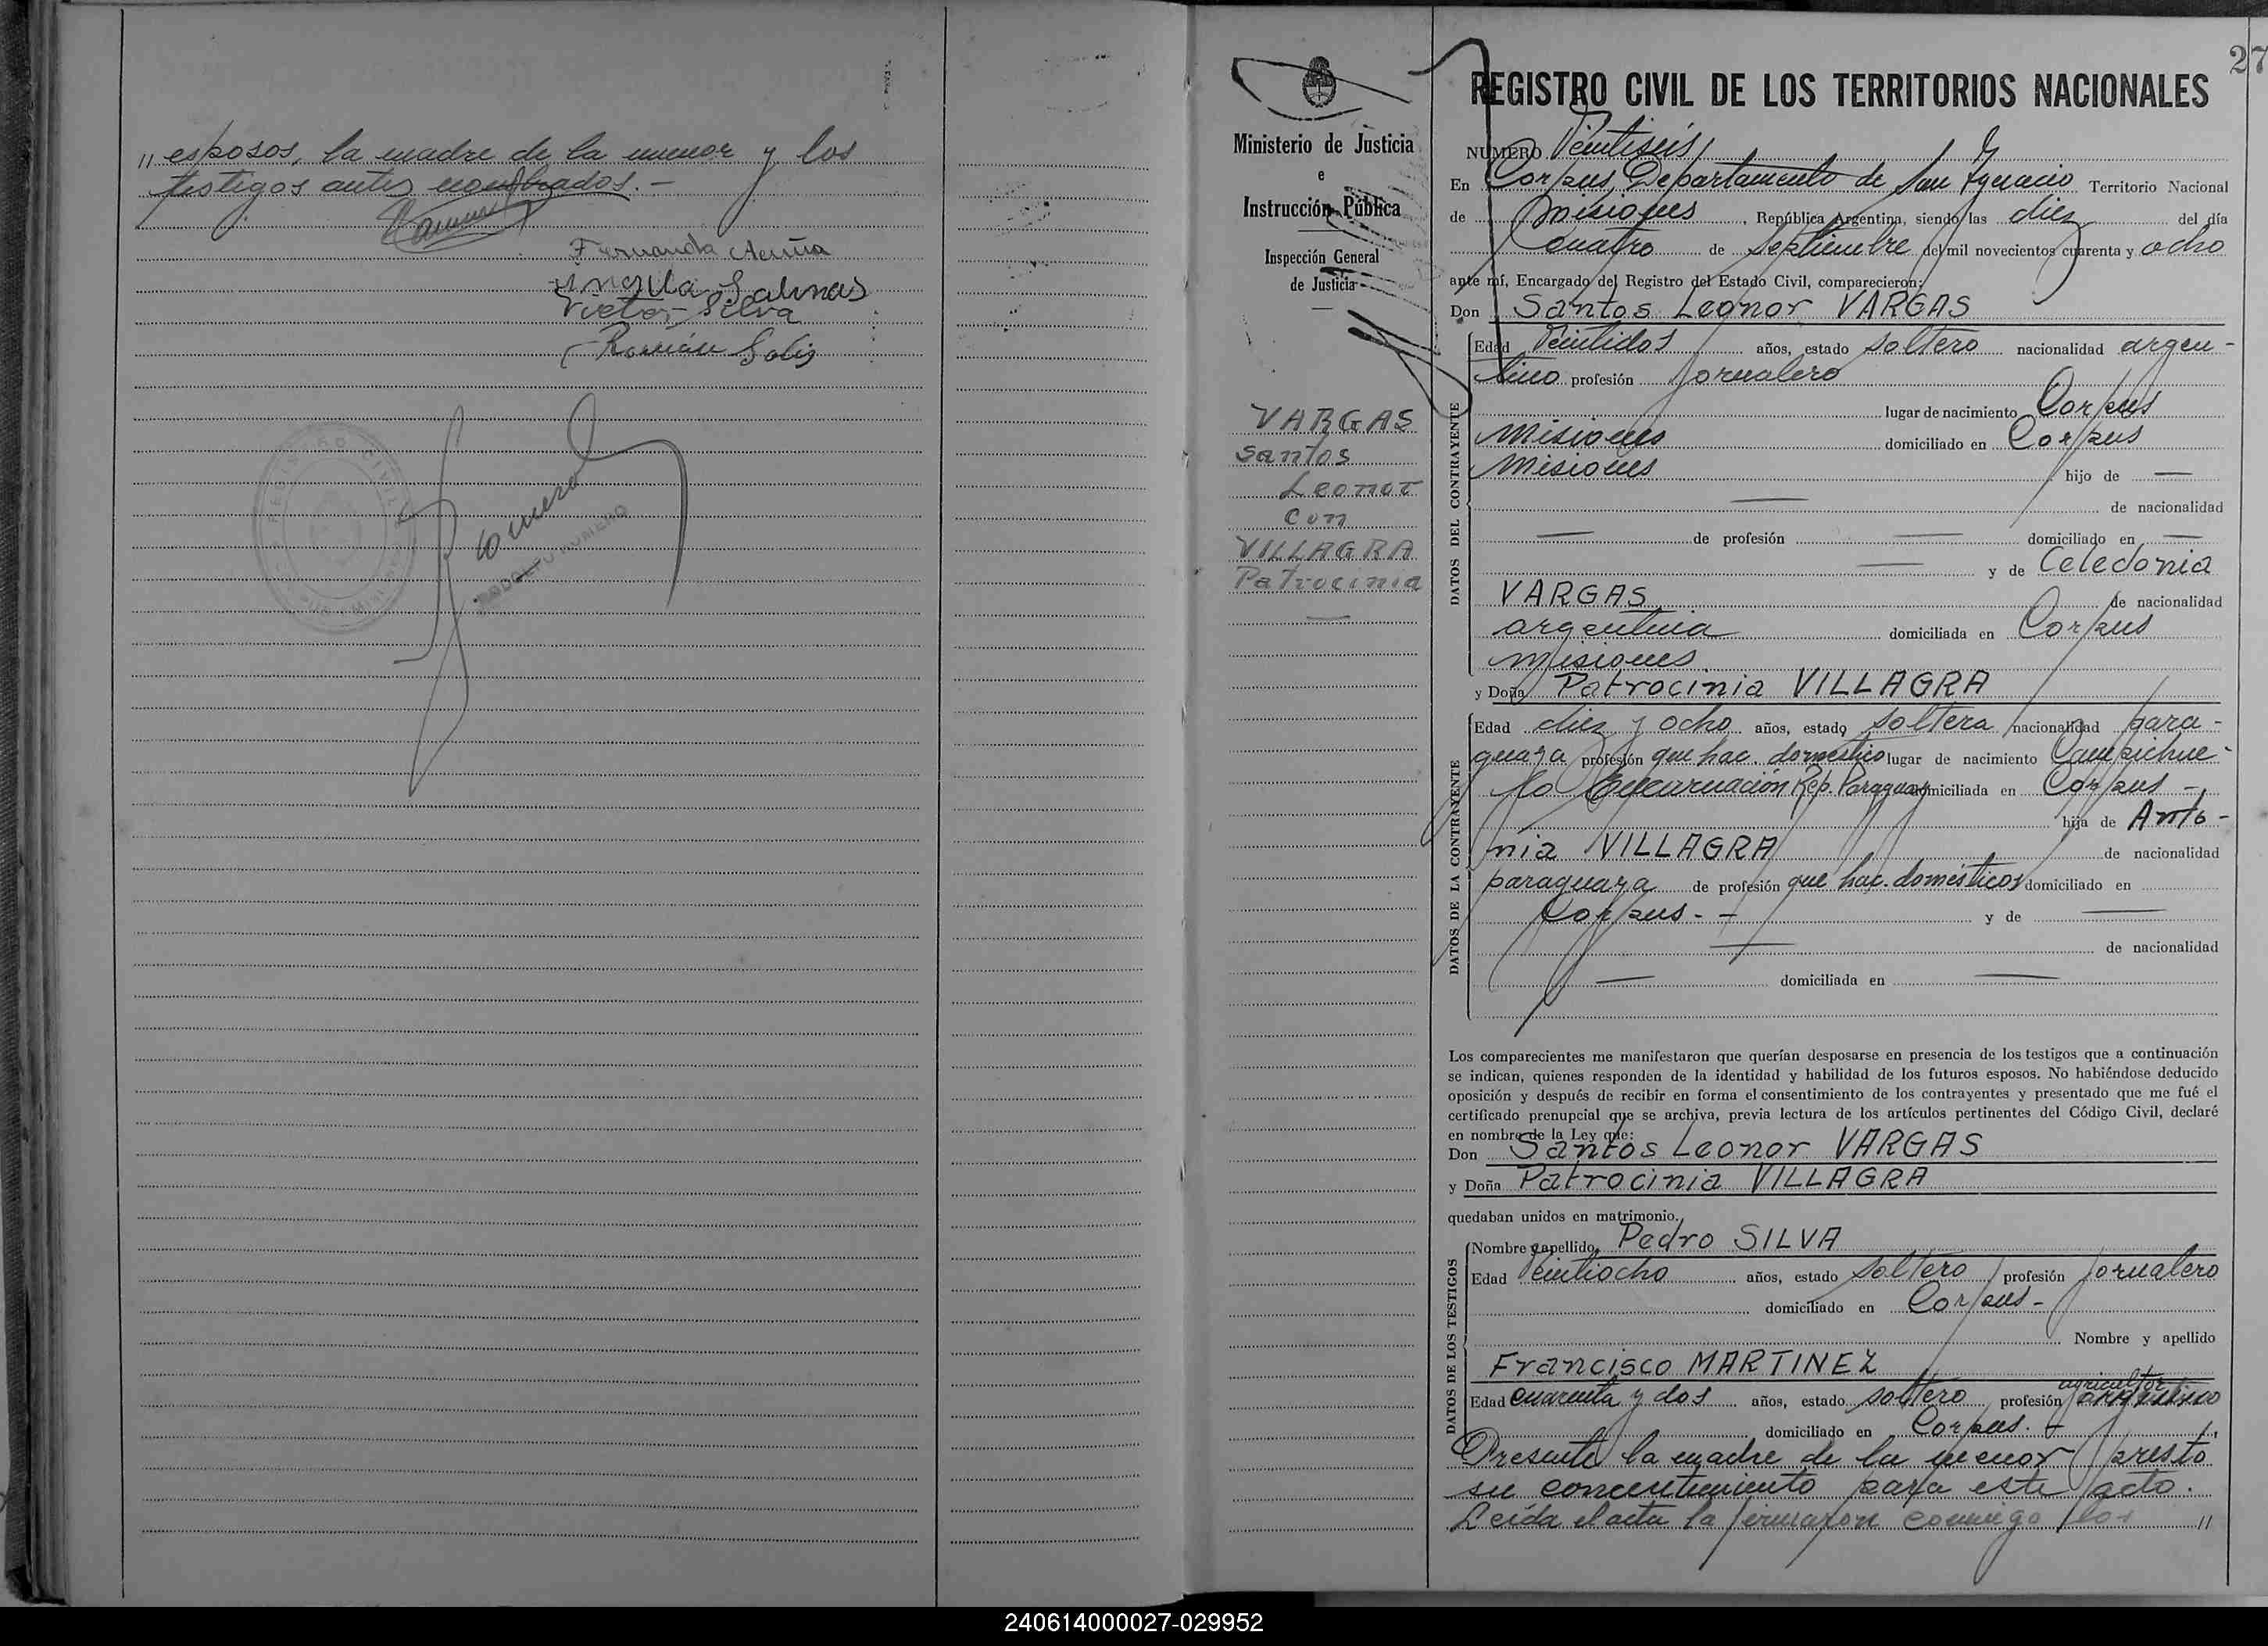 " esposos, la madre de la menor y los
testigos antes nombrados. -
Fernanda Acuña
Angela Salinas
Victor Silva
Román Solis
REGISTRO CIVIL
Romero
RODOLFO ROMERO
27
Ministerio de Justicia
e
Instrucción Pública
Inspección General
de Justicia
VARGAS
Santos
Leonor
con
VILLAGRA
Patrocinia
REGISTRO CIVIL DE LOS TERRITORIOS NACIONALES
NUMERO Veintiseis
En Corpus, Departamento de San Ignacio Territorio Nacional
de Misiones, República Argentina, siendo las diez del día
cuatro de Septiembre del mil novecientos cuarenta y ocho
ante mí, Encargado del Registro del Estado Civil, comparecieron:
Don Santos Leonor VARGAS
DATOS DEL CONTRAYENTE
Edad Veintidos años, estado soltero nacionalidad argen-
tino profesión jornalero
lugar de nacimiento Corpus
Misiones domiciliado en Corpus
Misiones hijo de —
— de nacionalidad
— de profesión — domiciliado en —
— y de Celedonia
VARGAS de nacionalidad
argentina domiciliada en Corpus
Misiones.
y Doña Patrocinia VILLAGRA
DATOS DE LA CONTRAYENTE
Edad diez y ocho años, estado soltera nacionalidad para-
guaya profesión que hac. domestico lugar de nacimiento Campichue-
lo Encarnación Rep. Paraguay domiciliada en Corpus -
hija de Anto-
nia VILLAGRA de nacionalidad
paraguaya de profesión que hac. domésticos domiciliado en
Corpus - - y de —
— de nacionalidad
— domiciliada en —
Los comparecientes me manifestaron que querían desposarse en presencia de los testigos que a continuación
se indican, quienes responden de la identidad y habilidad de los futuros esposos. No habiéndose deducido
oposición y después de recibir en forma el consentimiento de los contrayentes y presentado que me fué el
certificado prenupcial que se archiva, previa lectura de los artículos pertinentes del Código Civil, declaré
en nombre de la Ley que:
Don Santos Leonor VARGAS
y Doña Patrocinia VILLAGRA
quedaban unidos en matrimonio.
DATOS DE LOS TESTIGOS
Nombre y apellido Pedro SILVA
Edad Veintiocho años, estado soltero profesión jornalero
domiciliado en Corpus -
Nombre y apellido
Francisco MARTINEZ
agricultor
Edad cuarenta y dos años, estado soltero profesión
domiciliado en Corpus. -
Presente la madre de la menor presto
su concentimiento para este acto.
Leída el acta la firmaron conmigo los "
240614000027-029952